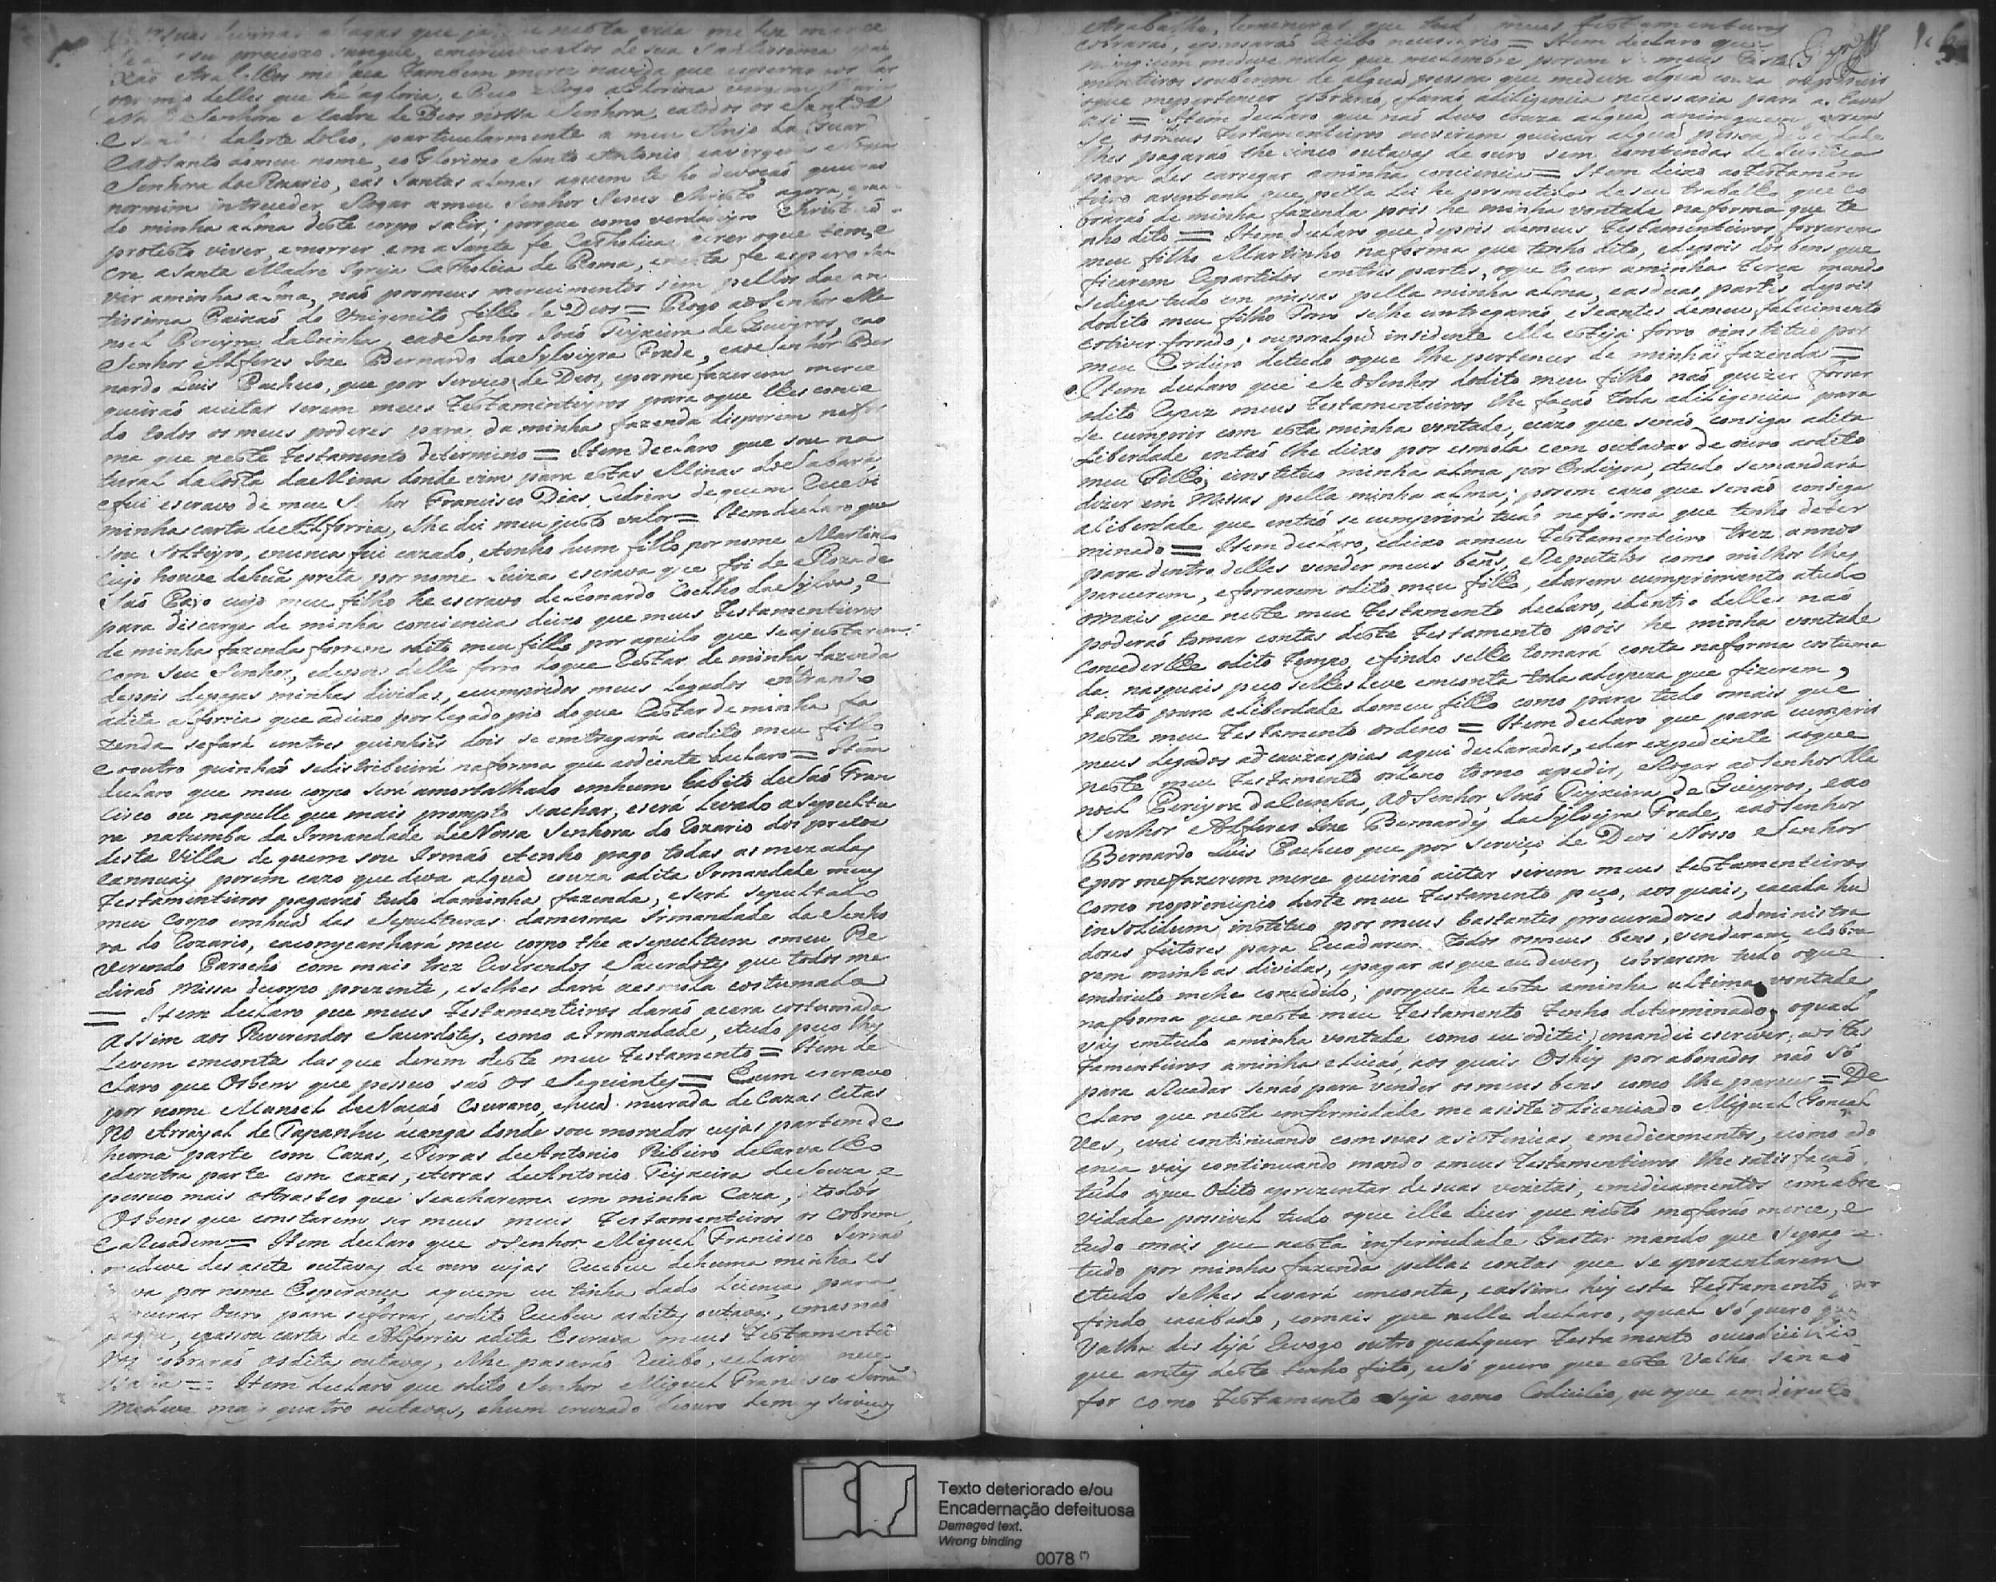 suas divinas chagas que ja nesta vida me fez merce
seu preciozo sangue, emerecimentos de sua Santissima pai
xaó etrabalhos me faça tambem merce navida que esperamos dar
opremio delles que he agloria, e Peço e Rogo aGlorioza virgem Maria
Nossa Senhora e Madre de Deos nossa Senhora, eatodos os eSantos
e Santas daCorte doCeo, particularmente a meu Anjo da Guar
da eaoSanto domeu nome, eo Gloriozo eSanto Antonio, eavirgem eNossa
eSenhora doeRozario, eás Santas almas aquem tenho devocaó queiraó
pormim intreceder, eRogar ameu Senhor Jesus Christo agora, quan
do minha alma deste corpo sahir; porque como verdadeiro Christaó
protesto viver, emorrer em aSanta fe Catholica, ecrer oque tem, e
cre aSanta eMadre Igreja Catholica de Roma, enesta fe espero Sal
var aminha alma, naó pormeus merecimentos sim pellos dae an
tissima Paixaó do Unigenito filho de Deos = Rogo aoSenhor Ma
noel Pereyra daCunha, eaoeSenhor Joaó Teyxeira de Gueyros, eao
eSenhor eAlferes Joze Bernardo daSylveyra Frade, eaoeSenhor Ber
nardo Luis Pacheco, que por serviço de Deos, epormefazerem merce
queiraó aceitar serem meus Testamenteyros para oque lhes conce
do todos osmeus poderes para da minha fazenda disporem nafor
ma que neste testamento determino = Item declaro que sou na
tural daCosta daeMina donde vim para estas Minas doeSabará,
efui escravo de meu Senhor Francisco Dias Sidrim dequem Recebi
minha carta deAlforria, elhe dei meu justo valor = Item declaro que
sou Solteyro, enunca fui cazado, etenho hum filho por nome eMartinho
cujo houve dehuã preta por nome Luiza escrava que foi de eRoza de
Saó Payo cujo meu filho he escravo deLeonardo Coelho daeSylva, e
para discarga de minha conciencia deixo que meus Testamenteiros
de minha fazenda forrem odito meu filho por aquilo que seajustarem
com seu Senhor, edepois delle forro doque Restar de minha fazenda
depois depagas minhas dividas, ecumpridos meus Legados entrando
adita alforria que adeixo porlegado pio doque Restar de minha fa
zenda sefará emtres quinhois dois se emtregará aodito meu filho
e ooutro quinhaó sedistribuirá naforma que aodiente declaro = Item
declaro que meu corpo será amortalhado emhum habito deSaó Fran
cisco ou naquelle que mais prompto seachar, eserá levado asepultu
ra natumba da Irmandade deeNossa Senhora do Rozario dos pretos
desta Villa de quem sou Irmaó etenho pago todas as mezadas
eannuais porem cazo que deva algua couza adita Irmandade meus
testamenteiros pagaraó tudo daminha fazenda, eserá sepultado
meu Corpo emhuã das eSepulturas damesma Irmandade da Senho
ra do Rozario, eacompanhará meu corpo the asepultura omeu Re
verendo Parocho com mais trez Reverendos eSacerdotes que todos me
diraó Missa decorpo prezente, eselhes dará aesmola costumada
= Item declaro que meus Testamenteiros daraó acera costumada
assim aos Reverendos Sacerdotes, como a Irmandade, etudo peço lhes
Levem emconta das que derem deste meu testamento = Item de
claro que Osbens que possuo saó os eSeguintes = Hum escravo
por nome eManoel deNacaó Courano, ehuã morada de Cazas citas
No Arrayal de Tapanhu acanga donde sou morador cujas partem de
huma parte com Cazas, eterras deAntonio Ribeiro deCarvalho
edeoutra parte com cazas, eterras deAntonio Teyxeira deeSouza, e
possuo mais ostrastes que seacharem em minha Caza, etodos
Osbens que constarem ser meus meus Testamenteiros os Cobrem
eaRecadem = Item declaro que oSenhor eMiguel Francisco Serraó
medeve des asete outavas de ouro cujas Recebeo dehuma minha es
crava por nome Esperança aquem eu tinha dado Licença para
procurar Ouro para seforrar, eodito Recebeo asditas outavas, emasnaó
pagou, epassou carta de Alforria adita Escrava meus Testamentei
ros cobraraó asditas outavas, elhe passaraó Recibo, eclareza nece
ssaria = Item declaro que odito Senhor eMiguel Francisco Serraó
Medeve mais quatro outavas, ehum cruzado deouro demeu serviço
etrabalho, que meus testamenteiros
cobraraó, epassaraó Recibo necessario = Item declaro que
ninguem medeve nada que melembre porem se meus testa
menteiros souberem de algua pessoa que medeva algua couza
oque mepertencer cobraraó, efaraó adiligencia necessaria para ahaver
asi = Item declaro que naó devo couza algua aninguem, porem
se osmeus Testamenteiros ouvirem queixar algua pessoa
lhes pagaraó the cinco outavas de ouro sem contendas de Justica
para des carregar aminha conciencia = Item deixo aotestamen
teiro aventena que pella Lei he prometida deseu trabalho que co
braraó de minha fazenda pois he minha vontade naforma que te
nho dito = Item declaro que depois demeus testamenteiros forrarem
meu filho Martinho naforma que tenho dito, edepois dos bens que
ficarem Repartidos emtres partes, oque tocar aminha terca mando
sediga tudo em missas pella minha alma, easduas partes depois
dodito meu filho Forro selhe emtregaraó, eSeantes demeu falecimento
estiver forrado, ouporalgum insidente elle esteja forro oinstituo por
meu Erdeiro detudo oque lhe pertencer de minha fazenda =
Item declaro que eSe oSenhor dodito meu filho naó quizer forrar
odito Rapaz meus Testamenteiros lhe façaó toda adiligencia para
se cumprir com esta minha vontade, ecazo que senaó consiga adita
Liberdade entaó lhe deixo por esmola cem outavas de ouro aodito
meu filho, einstituo minha alma, por Erdeyra, etudo semandará
dizer em Missas pella minha alma; porem cazo que senaó consiga
aliberdade que entaó se cumprirá tudo naforma que tenho deter
minado = Item declaro, edeixo ameu Testamenteiro trez annos
para dentro delles vender meus bens, eReputalos como milhor lhes
parecerem, eforrarem odito meu filho, edarem cumprimento atudo
omais que neste meu Testamento declaro, edentro delles naó
poderaó tomar contas deste Testamento pois he minha vontade
concederlhe odito tempo, efindo selhe tomará conta naforma costuma
da nasquais peço selhesLeve emconta toda adespeza que fizerem,
tanto para aliberdade domeu filho como para tudo omais que
neste meu Testamento ordeno = Item declaro que para cumprir
meus Legados adcauzas pias aqui declaradas, edar expediente aoque
neste meu Testamento ordeno torno apedir, eRogar aoSenhor Ma
noel Pereyra daCunha, aoSenhor Joaó Teyxeira de Gueyros, eao
Senhor eAlferes Joze Bernardo daSylveyra Frade, eaoSenhor
Bernardo Luis Pacheco que por serviço de Deos Nosso eSenhor
epor mefazerem merce queiraó aceitar serem meus testamenteiros
Como noprincipio deste meu Testamento peço, aos quais, eacada hu
insolidum instituo por meus bastantes procuradores administra
dores feitores para Recadarem todos osmeus bens, venderem, eCobra
rem minhas dividas, epagar asque eudever, cobrarem tudo oque
emdireito mehe concedido; porque he esta aminha ultima vontade
naforma que neste meu Testamento tenho determinado, oqual
vay emtudo aminha vontade como eu oditei, emandei escrever aos tes
tamenteiros aminha eleicaó, aos quais Oshey por abonados naó só
para aRecadar senaó para vender osmeus bens como lhe parecer = De
claro que nesta emfermidade me asiste oLicenciado Miguel Goncal
ves, evai continuando comsuas asistencias, emedicamentos, ecomo ado
enca vay continuando mando ameus testamenteiros lhe satisfaçaó
tudo oque Odito aprezentar desuas vezitas, emedicamentos comabre
vidade possivel tudo oque elle dicer que nisto mefaraó merce, e
tudo omais que nesta infermidade Gastar mando que sepague
tudo por minha fazenda pellas contas que se aprezentarem
etudo selhes Levará emconta, eassim hey este Testamento por
findo eacabado, eomais que nelle declaro, oqual só quero que
Valha des dejá Revogo outro qualquer Testamento oucodicilio
que antes deste tenha feito, eSó quero que este Valha senaó
for como Testamento eSeja como Codicilio, ou oque emdireito
Texto deteriorado e/ou
Encadernação defeituosa
Damaged text.
Wrong binding
0078 (*)